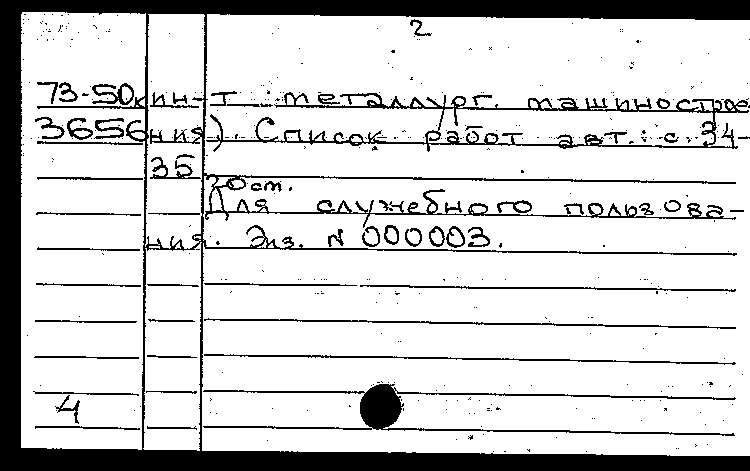 2
73-50к ин-т металлург. машиностро
3656 ния). Список работ авт.: с. 34-
35
20 ст.
Для служебного пользова-
ния. Экз. N 000003.
4